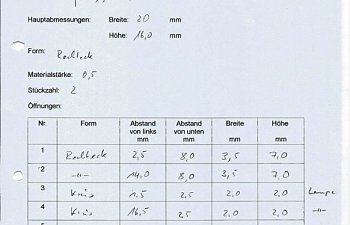 Hauptabmessungen: Breite: 20 mm
Höhe: 16,0 mm
Form: Rechteck
Materialstärke: 0,5
Stückzahl: 2
Öffnungen:
Nr. Form Abstand von links mm Abstand von unten mm Breite mm Höhe mm
1 Rechteck 2,5 8,0 3,5 7,0
2 -"- 14,0 8,0 3,5 7,0
3 Kreis 1,5 2,5 2,0 2,0 Lampe
4 Kreis 16,5 2,5 2,0 2,0 -"-